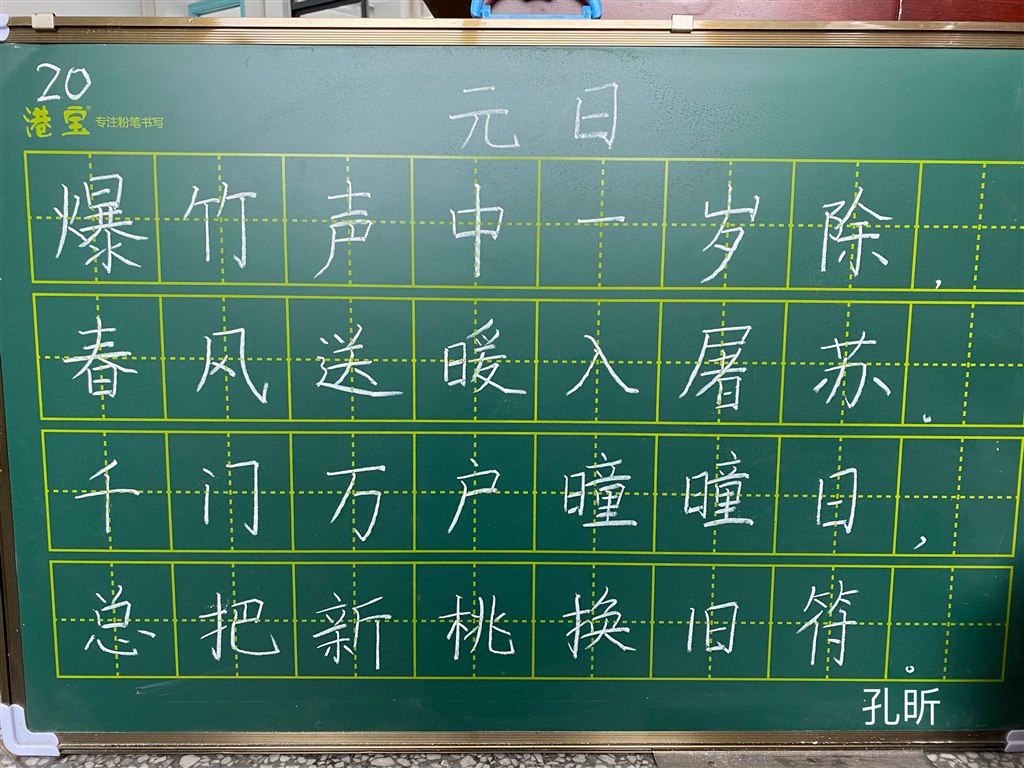 20
港宝® 专注粉笔书写
元日
爆竹声中一岁除,
春风送暖入屠苏。
千门万户曈曈日,
总把新桃换旧符。
孔昕